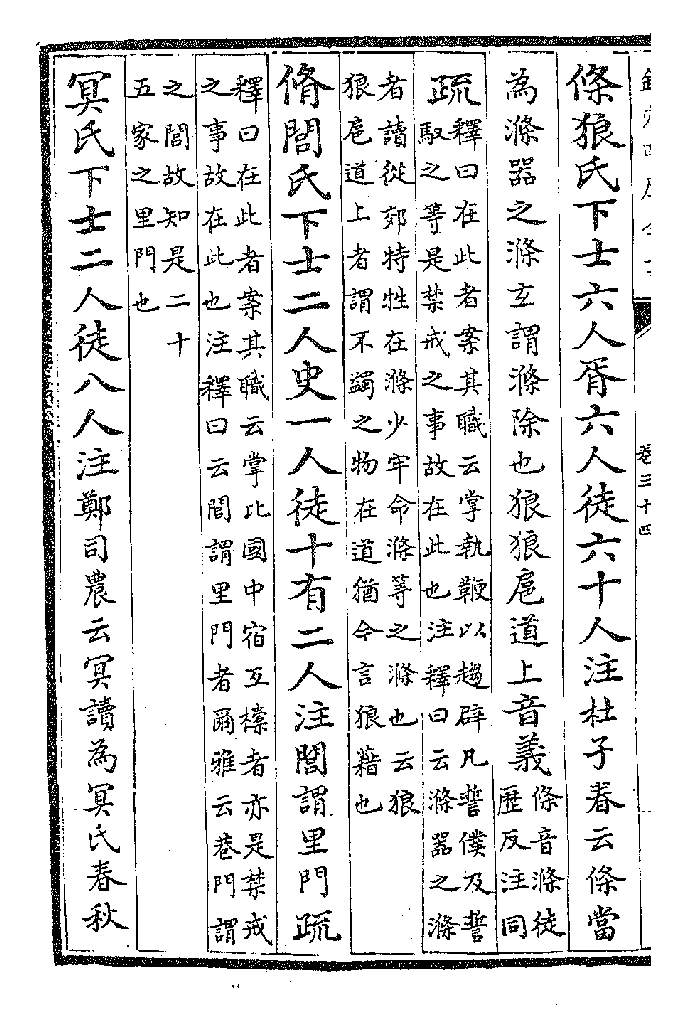 條狼氏下士六人胥六人徒六十人注杜子春云條當
為滌器之滌玄謂滌除也狼狼扈道上音義條音滌徒
歷反注同
疏釋曰在此者案其職云掌執鞭以趨辟凡誓僕及誓
馭之等是禁戒之事故在此也注釋曰云滌器之滌
者讀從郊特牲在滌少牢命滌等之滌也云狼
狼扈道上者謂不蠲之物在道猶今言狼藉也
脩閭氏下士二人史一人徒十有二人注閭謂里門疏
釋曰在此者案其職云掌比國中宿互㯓者亦是禁戒
之事故在此也注釋曰云閭謂里門者爾雅云巷門謂
之閭故知是二十
五家之里門也
冥氏下士二人徒八人注鄭司農云冥讀為冥氏春秋
卷三十四